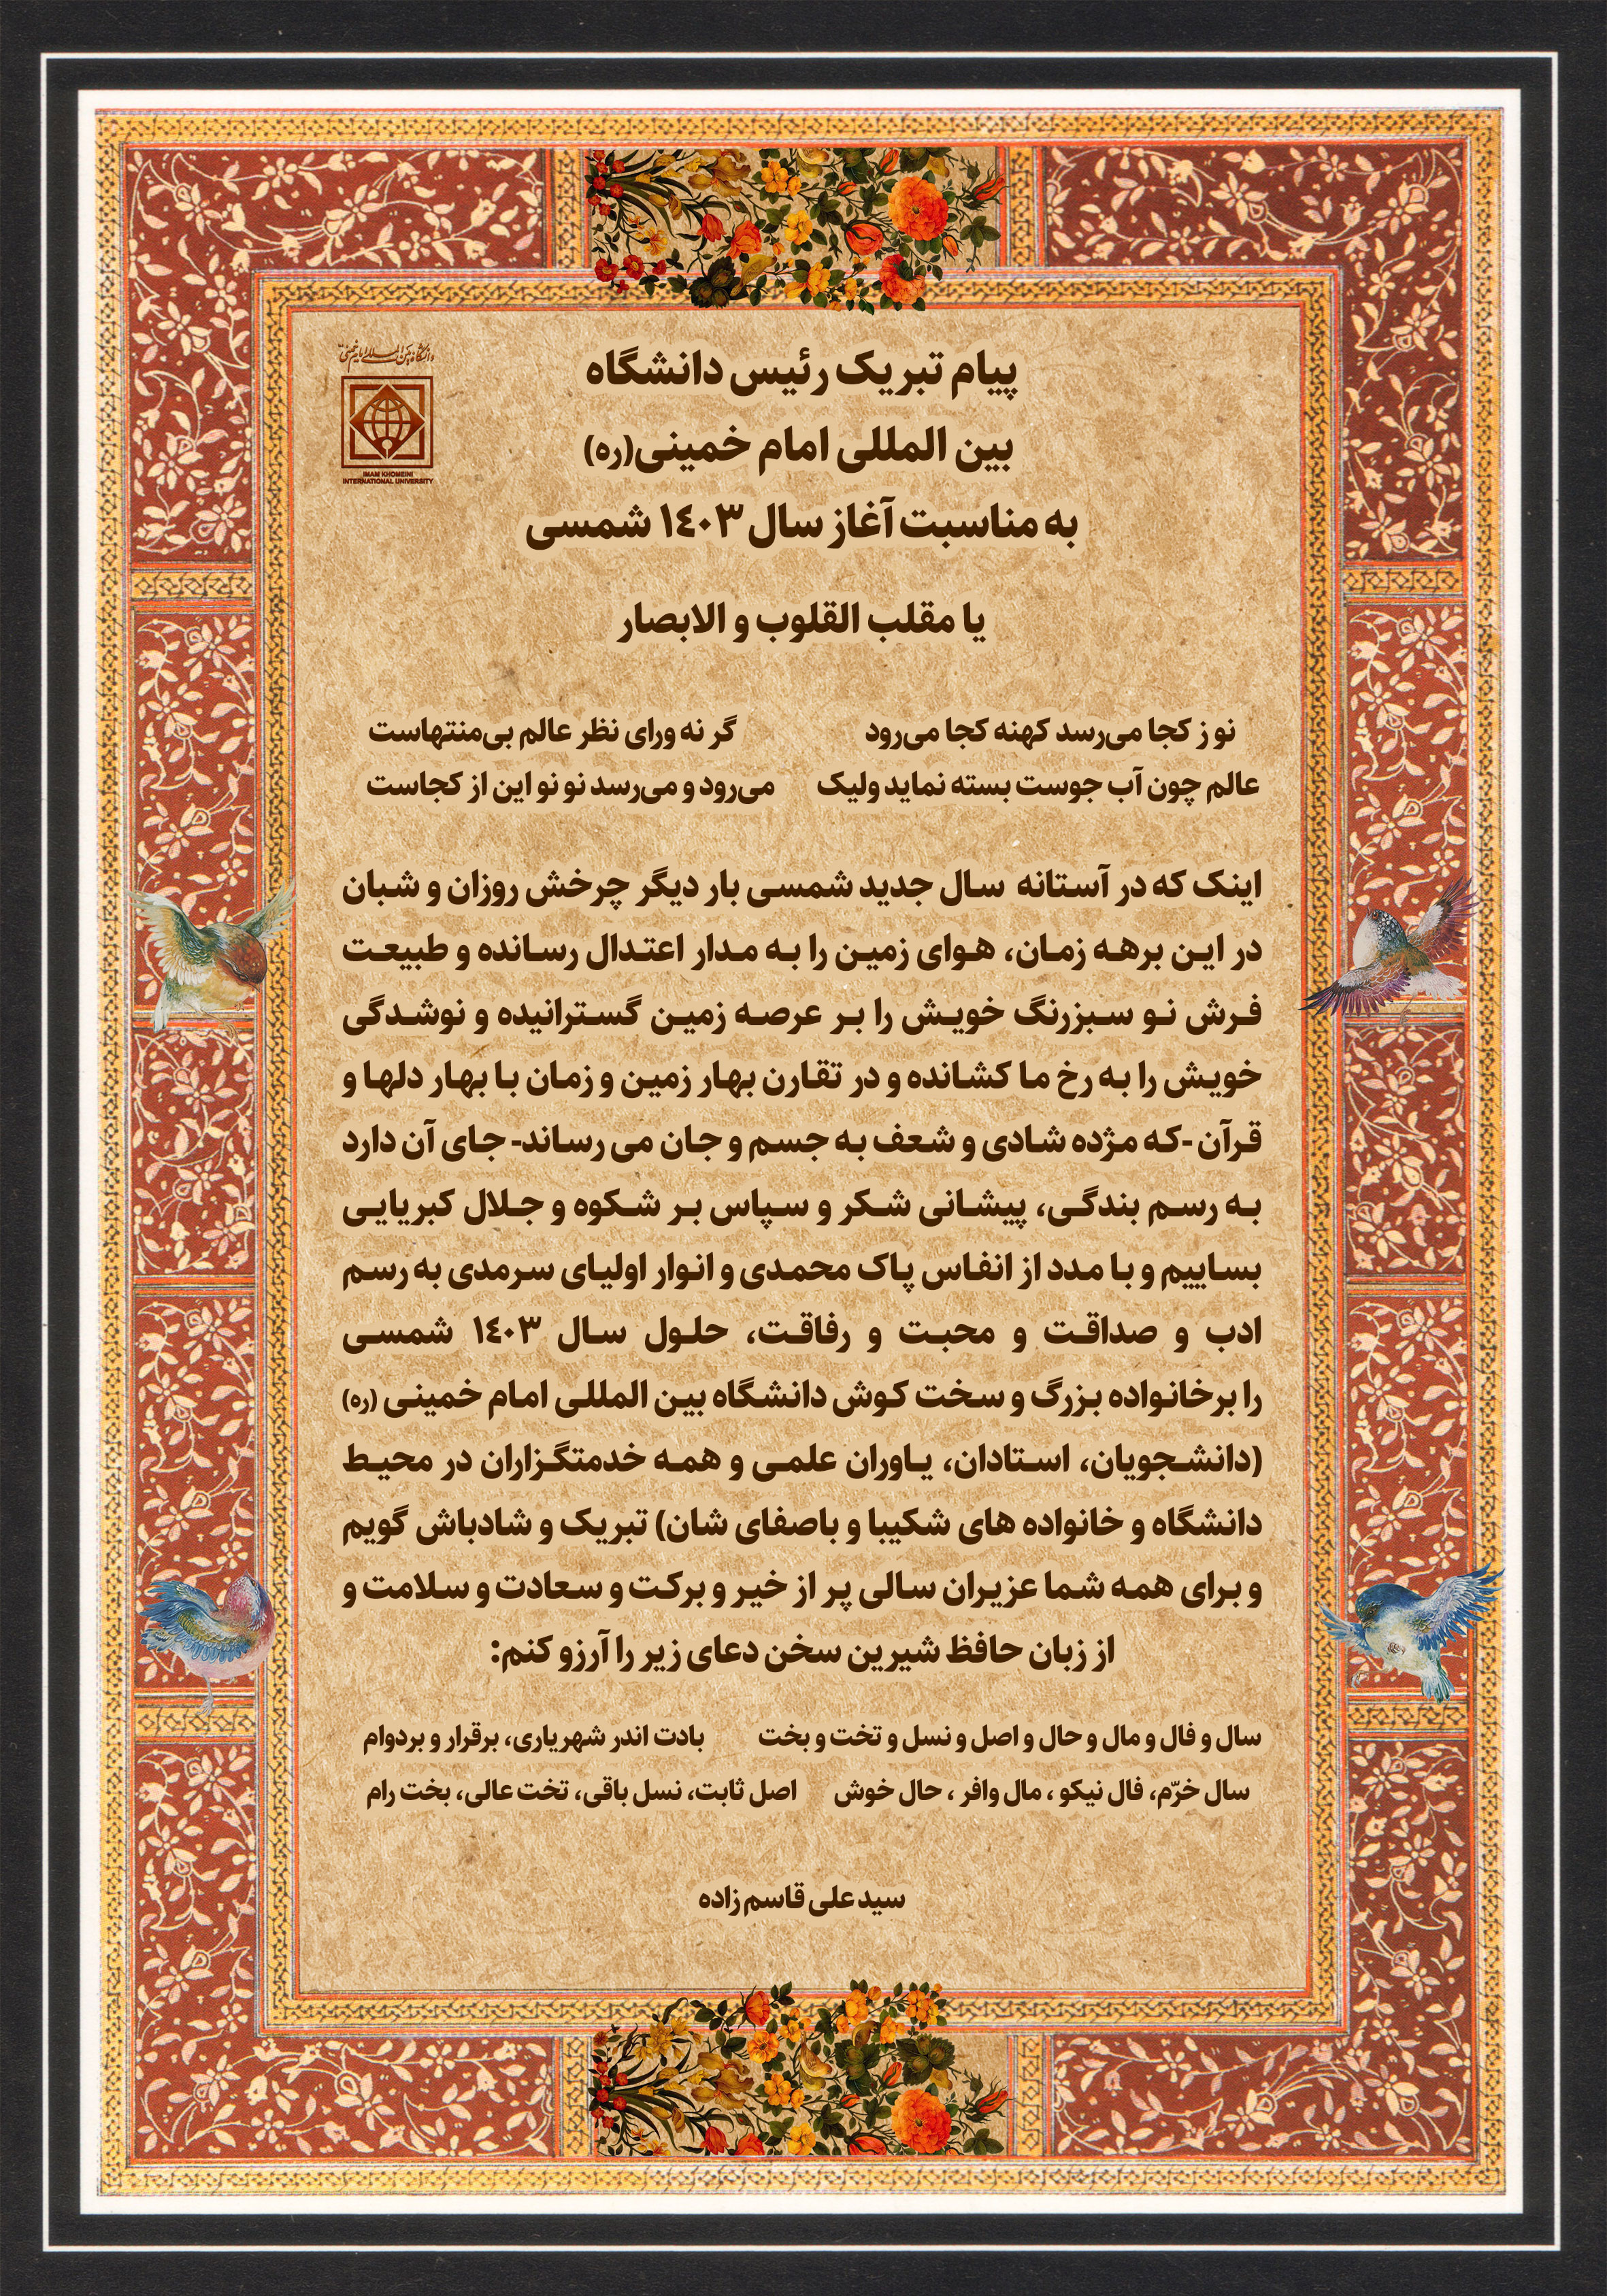 دانشگاه بین المللی امام خمینی
IMAM KHOMEINI
INTERNATIONAL UNIVERSITY
پیام تبریک رئیس دانشگاه
بین المللی امام خمینی(ره)
به مناسبت آغاز سال ١٤٠٣ شمسی
یا مقلب القلوب و الابصار
نو ز کجا می‌رسد کهنه کجا می‌رود گر نه ورای نظر عالم بی‌منتهاست
عالم چون آب جوست بسته نماید ولیک می‌رود و می‌رسد نو نو این از کجاست
اینک که در آستانه سال جدید شمسی بار دیگر چرخش روزان و شبان
در این برهه زمان، هوای زمین را به مدار اعتدال رسانده و طبیعت
فرش نو سبزرنگ خویش را بر عرصه زمین گسترانیده و نوشدگی
خویش را به رخ ما کشانده و در تقارن بهار زمین و زمان با بهار دلها و
قرآن -که مژده شادی و شعف به جسم و جان می رساند- جای آن دارد
به رسم بندگی، پیشانی شکر و سپاس بر شکوه و جلال کبریایی
بساییم و با مدد از انفاس پاک محمدی و انوار اولیای سرمدی به رسم
ادب و صداقت و محبت و رفاقت، حلول سال ١٤٠٣ شمسی
را برخانواده بزرگ و سخت کوش دانشگاه بین المللی امام خمینی (ره)
(دانشجویان، استادان، یاوران علمی و همه خدمتگزاران در محیط
دانشگاه و خانواده های شکیبا و باصفای شان) تبریک و شادباش گویم
و برای همه شما عزیران سالی پر از خیر و برکت و سعادت و سلامت و
از زبان حافظ شیرین سخن دعای زیر را آرزو کنم:
سال و فال و مال و حال و اصل و نسل و تخت و بخت بادت اندر شهریاری، برقرار و بردوام
سال خرّم، فال نیکو ، مال وافر ، حال خوش اصل ثابت، نسل باقی، تخت عالی، بخت رام
سید علی قاسم زاده